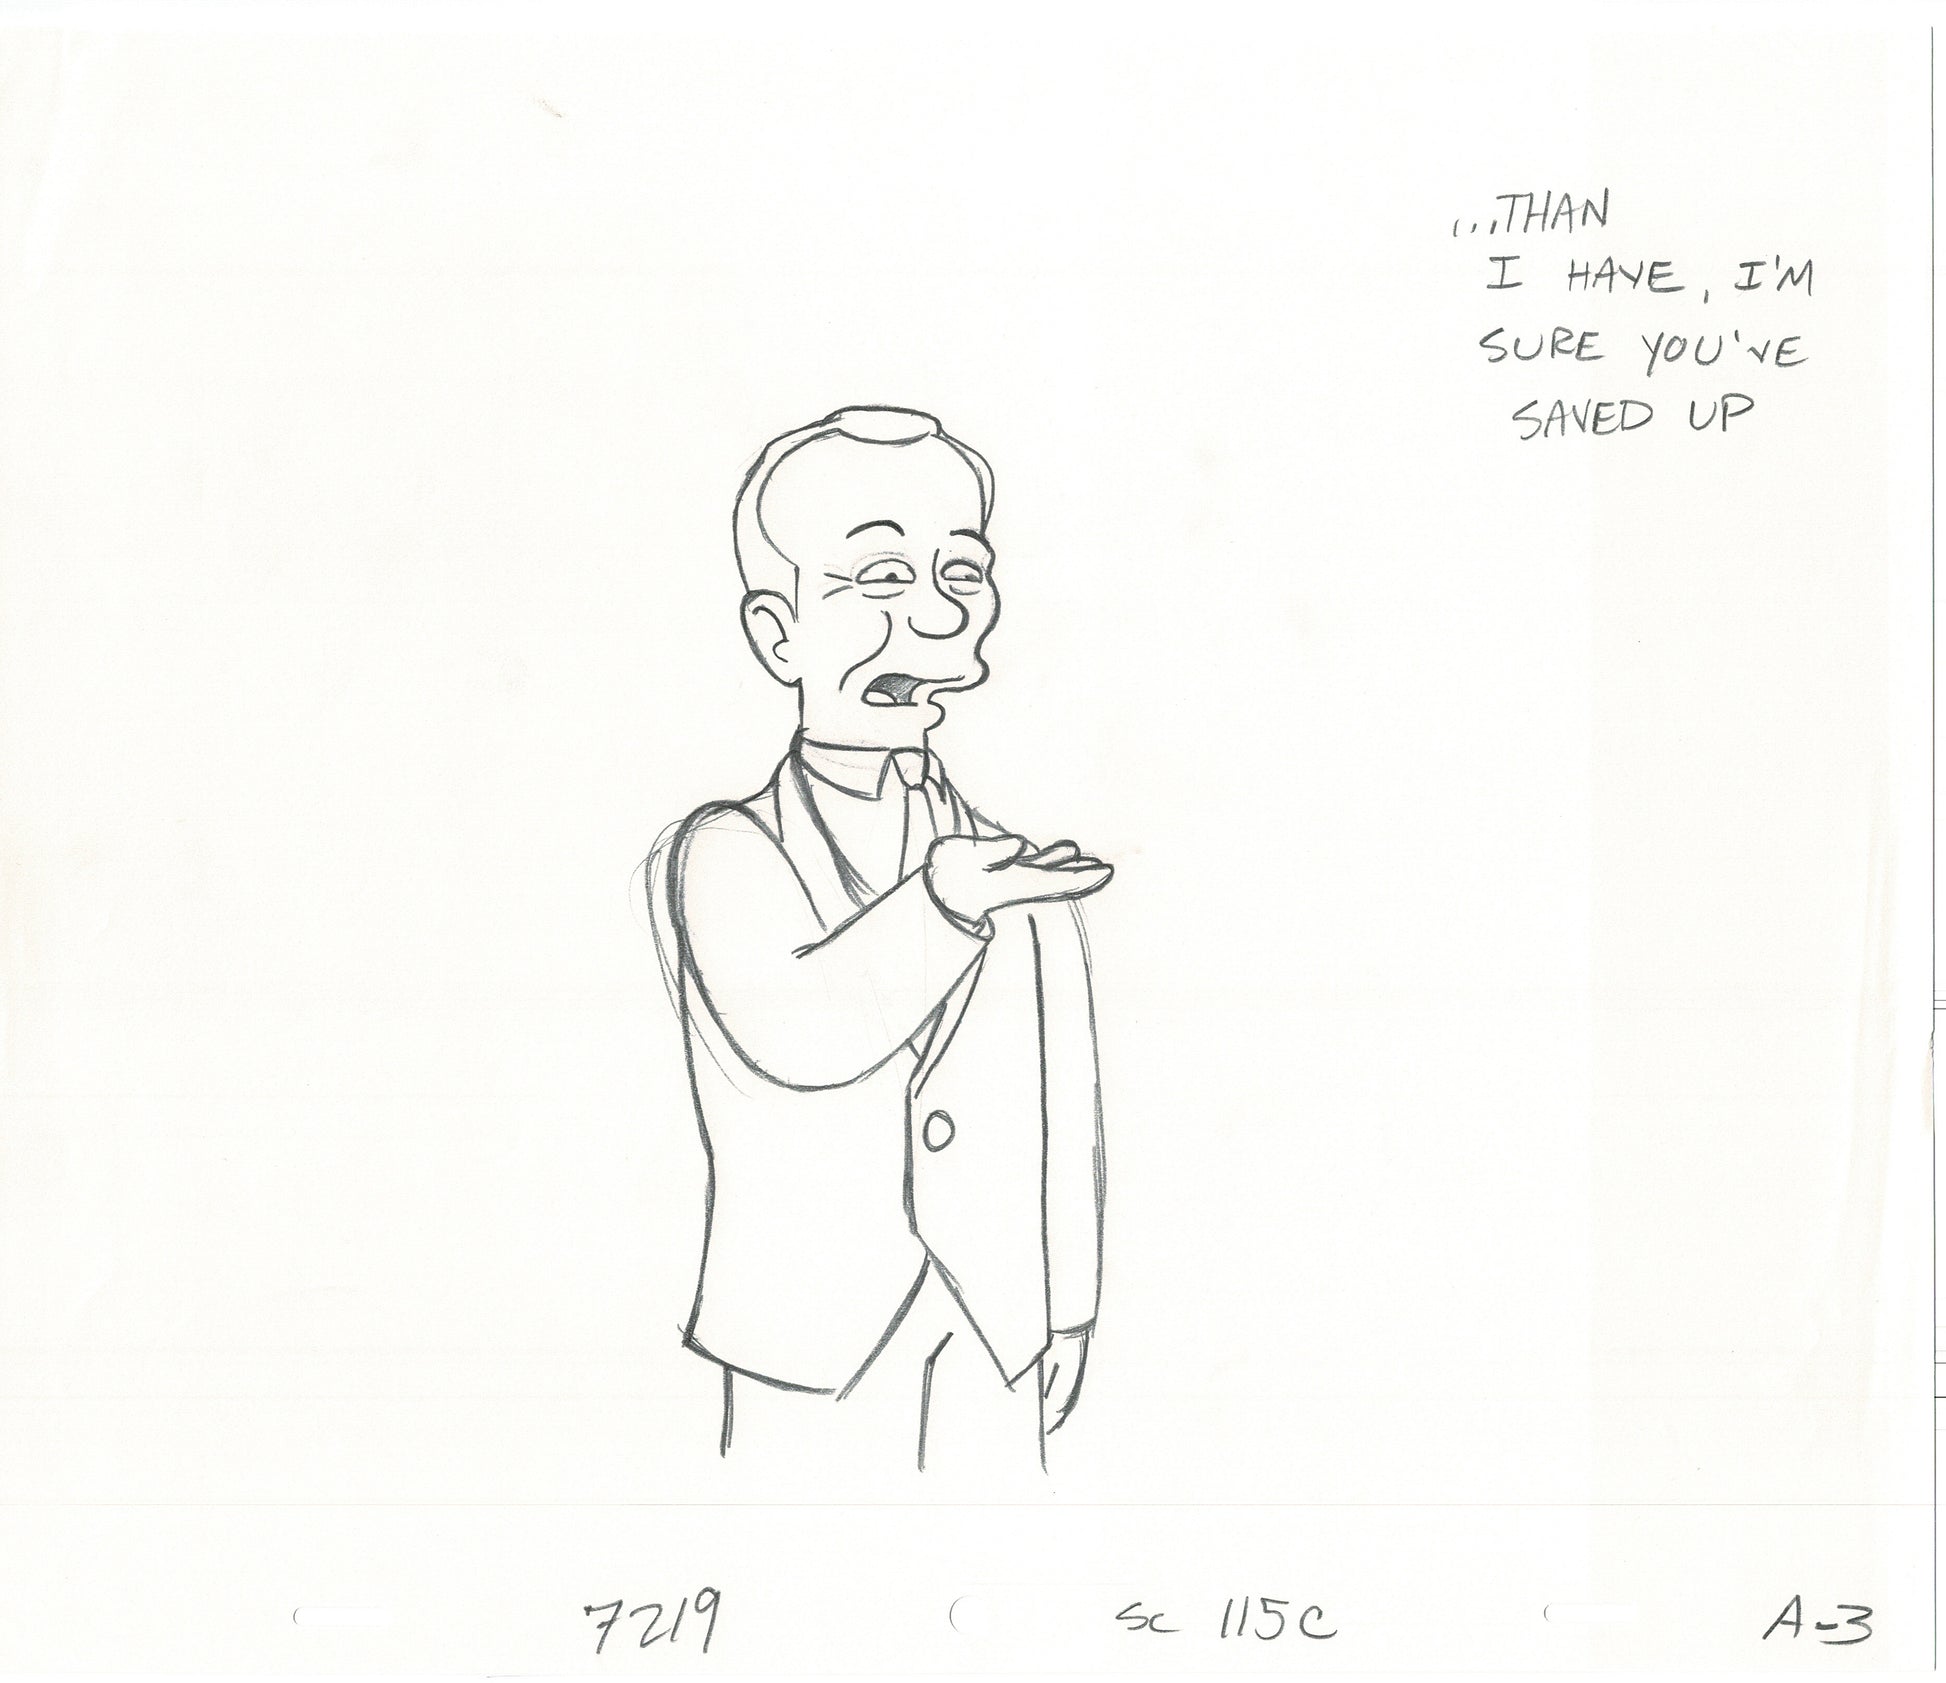 ...THAN
I HAVE, I'M
SURE YOU'VE
SAVED UP
7219 SC 115C A-3